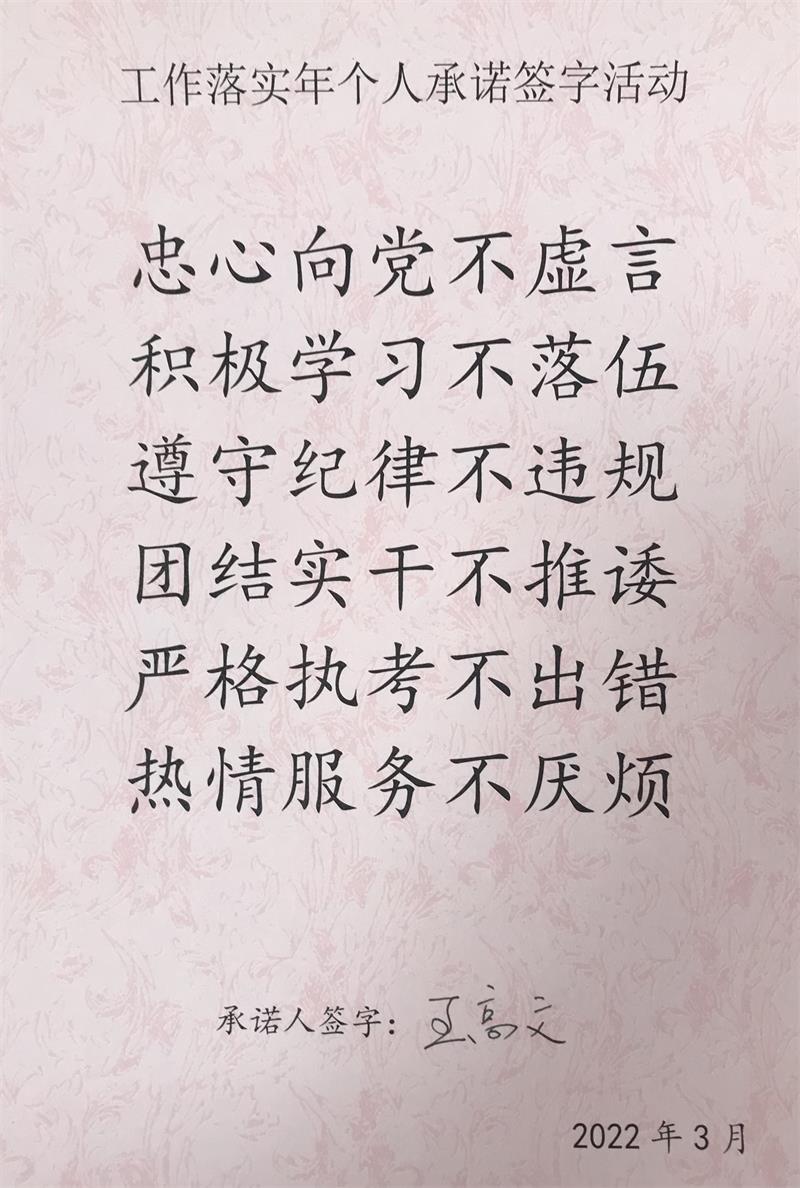 工作落实年个人承诺签字活动
忠心向党不虚言
积极学习不落伍
遵守纪律不违规
团结实干不推诿
严格执考不出错
热情服务不厌烦
承诺人签字：王高文
2022 年 3 月